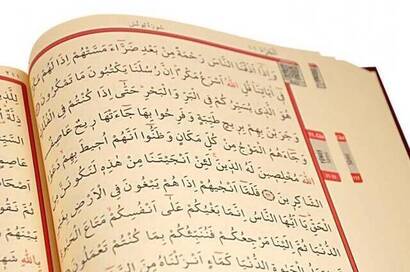 سُورَةُ يُونُسَ
وَإِذَا أَذَقْنَا النَّاسَ رَحْمَةً مِنْ بَعْدِ ضَرَّاءَ مَسَّتْهُمْ إِذَا لَهُمْ
فِي آيَاتِنَا قُلِ اللّٰهُ أَسْرَعُ مَكْرًا إِنَّ رُسُلَنَا يَكْتُبُونَ مَا تَمْكُرُونَ
هُوَ الَّذِي يُسَيِّرُكُمْ فِي الْبَرِّ وَالْبَحْرِ حَتَّى إِذَا كُنْتُمْ فِي الْفُلْكِ
وَجَرَيْنَ بِهِمْ بِرِيحٍ طَيِّبَةٍ وَفَرِحُوا بِهَا جَاءَتْهَا رِيحٌ عَاصِفٌ
وَجَاءَهُمُ الْمَوْجُ مِنْ كُلِّ مَكَانٍ وَظَنُّوا أَنَّهُمْ أُحِيطَ بِهِمْ
اللّٰهَ مُخْلِصِينَ لَهُ الدِّينَ لَئِنْ أَنْجَيْتَنَا مِنْ هٰذِهِ لَنَكُونَنَّ
الشَّاكِرِينَ فَلَمَّا أَنْجٰيهُمْ إِذَا هُمْ يَبْغُونَ فِي الْأَرْضِ
الْحَقِّ يَا أَيُّهَا النَّاسُ إِنَّمَا بَغْيُكُمْ عَلَى أَنْفُسِكُمْ مَتَاعَ
الدُّنْيَا ثُمَّ إِلَيْنَا مَرْجِعُكُمْ فَنُنَبِّئُكُمْ بِمَا كُنْتُمْ تَعْمَلُونَ
الدُّنْيَا كَمَاءٍ أَنْزَلْنَاهُ